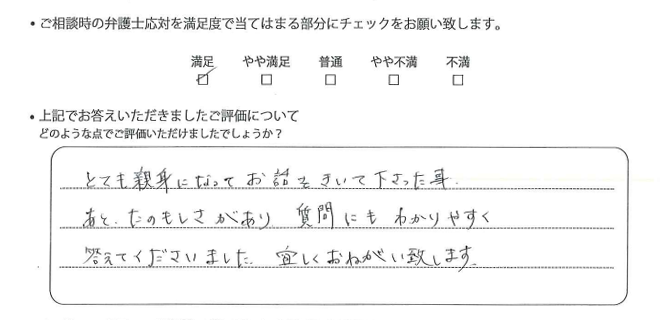 ・ご相談時の弁護士応対を満足度で当てはまる部分にチェックをお願い致します。
満足 やや満足 普通 やや不満 不満
☑ □ □ □ □
・上記でお答えいただきましたご評価について
どのような点でご評価いただけましたでしょうか？
とても親身になってお話をきいて下さった事.
あと、たのもしさがあり 質問にも わかりやすく
答えてくださいました. 宜しくおねがい致します.